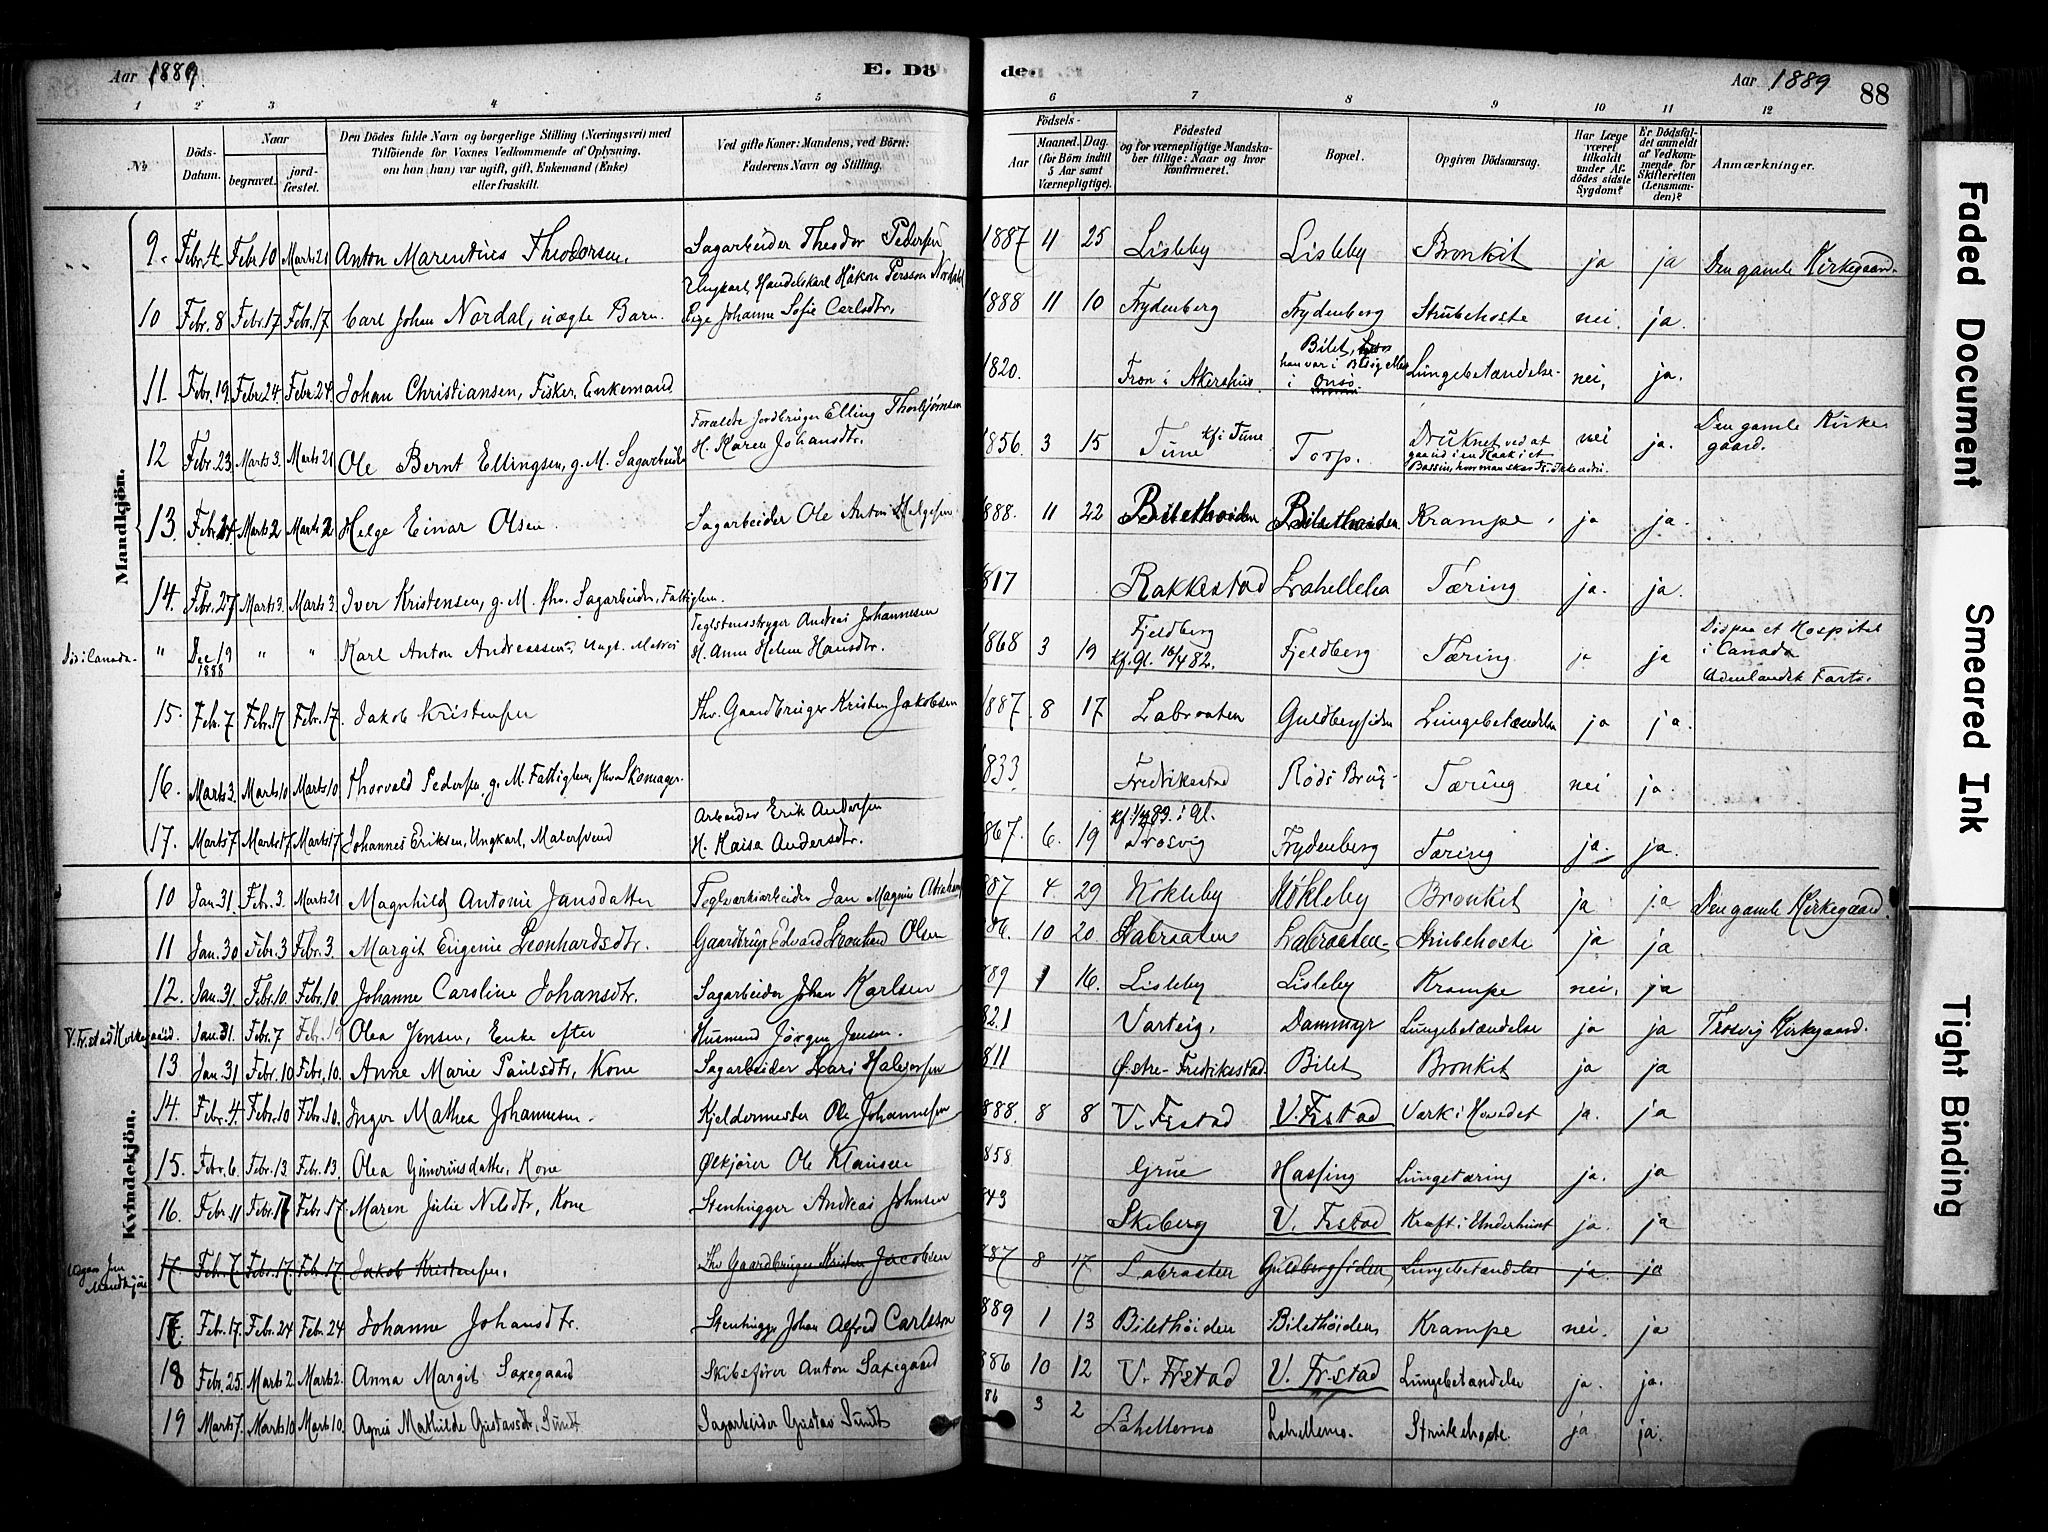 Aar 1889. E. Dö de. Aar 1889 88
1 2 3 4 5 6 7 8 9 10 11 12
No. Döds-Datum. Naar begravet. jordfæstet. Den Dödes fulde Navn og borgerlige Stilling (Næringsvei) med Tilföiende for Voxnes Vedkommende af Oplysning, om han (hun) var ugift, gift, Enkemand (Enke) eller fraskilt. Ved gifte Koner: Mandens, ved Börn: Faderens Navn og Stilling. Födsels- Aar Maaned. Dag. (for Börn indtil 5 Aar samt Værnepligtige). Födested og for værnepligtige Mandskaber tillige: Naar og hvor konfirmeret. Bopæl. Opgiven Dödsaarsag. Har Læge været tilkaldt under Afdödes sidste Sygdom? Er Dödsfaldet anmeldt af Vedkommende, for Skifteretten (Lensmanden)? Anmærkninger.
Mandkjön.
9. Febr. 4. Febr 10 Marts 21 Anton Marentius Theodorsen. Sagarbeider Theodor Pedersen 1887 11 25 Lisleby Lisleby Bronkit ja ja Den gamle Kirkegaard.
10 Febr. 8 Febr. 17 Febr. 17 Carl Johan Nordal, uægte Barn. Ungkarl, Handelskarl Håkon Persson Nordahl Pige Johanne Sofie Carlsdtr. 1888 11 10 Frydenberg Frydenberg Strubehoste nei. ja.
11. Febr. 19. Febr. 24. Febr. 24 Johan Christiansen, Fisker, Enkemand 1820. Fron i Akershus Bilet, han var i Besög i Onsö Lungebetændelse nei, ja.
12 Febr. 23. Marts 3. Marts 21 Ole Bernt Ellingsen, g. M. Sagarbeider Foraldre Jordbruger Elling Thorbjørnsen H. Karen Johansdtr. 1856. 3 15 Tune kf. i Tune Torp. Druknet ved at gaa ud i en Raak i et Bassin, nei ja. Den gamle Kirkegaard.
13. Febr. 24. Marts 2 Marts 2 Helge Einar Olsen Sagarbeider Ole Anton Helgesen 888. 11 22 Bilethöiden Bilethöiden Krampe. ja ja.
14. Febr. 27 Marts 3. Marts 3. Iver Kristensen, g. M. fhv. Sagarbeider, Fattiglem. 817 Rakkestad Lahellelia Tæring ja. ja.
Död i Canada. " Dec 19 1888 " " Karl Anton Andreassen, Ungk. Matros Teglstensstryger Andreas Johannesen H. Anne Helene Hansdtr. 1868 3 19 Fjeldberg kf. Gl. 16/4 82. Fjeldberg Tæring ja ja Död paa et Hospital i Canada Udenlandsk Farts.
15. Febr. 7 Febr. 17 Febr. 17. Jakob Kristensen fhv. Gaardbruger Kristen Jakobsen 1887. 8 17 Labraaten Guldbergsiden Lungebetændelse ja ja.
16. Marts 3. Marts 10 Marts 10. Thorvald Pedersen, g. M. Fattiglem, fhv. Skomager. 833 Fredrikstad Röds Brug Tæring nei ja.
17. Marts 7 Marts 17 Marts 17 Johannes Eriksen, Ungkarl, Malersvend Arbeider Erik Andersen H. Kaisa Andersdtr. 867. 6. 19 Trosvig Frydenberg Tæring ja. ja.
Kvindekjön.
10 Jan. 31. Febr. 3. Marts 21 Magnhild Antonie Jansdatter Teglværksarbeider Jan Magnus 887 4 29 Nökleby Nökleby Bronkit ja ja Den gamle Kirkegaard.
11 Jan. 30 Febr. 3 Febr. 3. Margit Eugenie Leonhardsdtr. Gaardbruger Edvard Leonhard Olsen 86. 10 20. Labraaten Labraaten Strubehoste ja ja
12. Jan. 31. Febr. 10. Febr. 10. Johanne Caroline Johansdtr. Sagarbeider Johan Karlsen 889 1 16. Lisleby Lisleby Krampe nei. ja
V. Fr.stad Kirkegaard. Jan. 31. Febr. 7 Febr. Olea Jensen, Enke efter Husmand Jörgen Jensen. 821 Varteig. Dammyr Lungebetændelse ja ja Trosvig Kirkegaard.
13 Jan. 31 Febr. 10 Febr. 10. Anne Marie Paulsdtr, Kone Sagarbeider Lars Halvorsen 811 Østre-Fredrikstad. Bilet Bronkit ja ja
14. Febr. 4. Febr. 10 Febr. 10. Inger Mathea Johannesen. Kjeldermester Ole Johannesen 888. 8 8 V. Frstad V. Frstad Værk i Hovedet ja. ja
15. Febr. 6. Febr. 13. Febr. 13. Olea Gunerius datter, Kone Ølkjörer Ole Klausen 858 Grue Hassing Lungetæring ja. ja
16. Febr. 11 Febr. 17 Febr. 17. Maren Julie Nilsdtr, Kone Stenhugger Andreas Johnsen 843 Skeberg V. Frstad Kræft i Underlivet ja. ja
17. Febr. 7. Febr. 17. Febr. 17. Jakob Kristensen. fhv Gaardbruger Kristen Jacobsen 887 8 17. Labraaten Guldbergsiden Lungebetændelse ja. ja
17. Febr. 17. Febr. 24 Febr. 24 Johanne Johansdtr. Stenhugger Johan Alfred Carlsson 889 1 13 Bilethöiden Bilethöiden Krampe nei. ja
18 Febr. 25. Marts 2 Marts 2. Anna Margit Saxegaard Skibsförer Anton Saxegaard 886 10 12 V. Frstad V. Frstad Lungebetændelse ja. ja.
19 Marts 7. Marts 10 Marts 10. Agnes Mathilde Gustavsdtr. Sundt Sagarbeider Gustav Sundt 86 3 2 Lahellemo Lahellemo. Strubehoste. ja ja.
Faded Document
Smeared Ink
Tight Binding